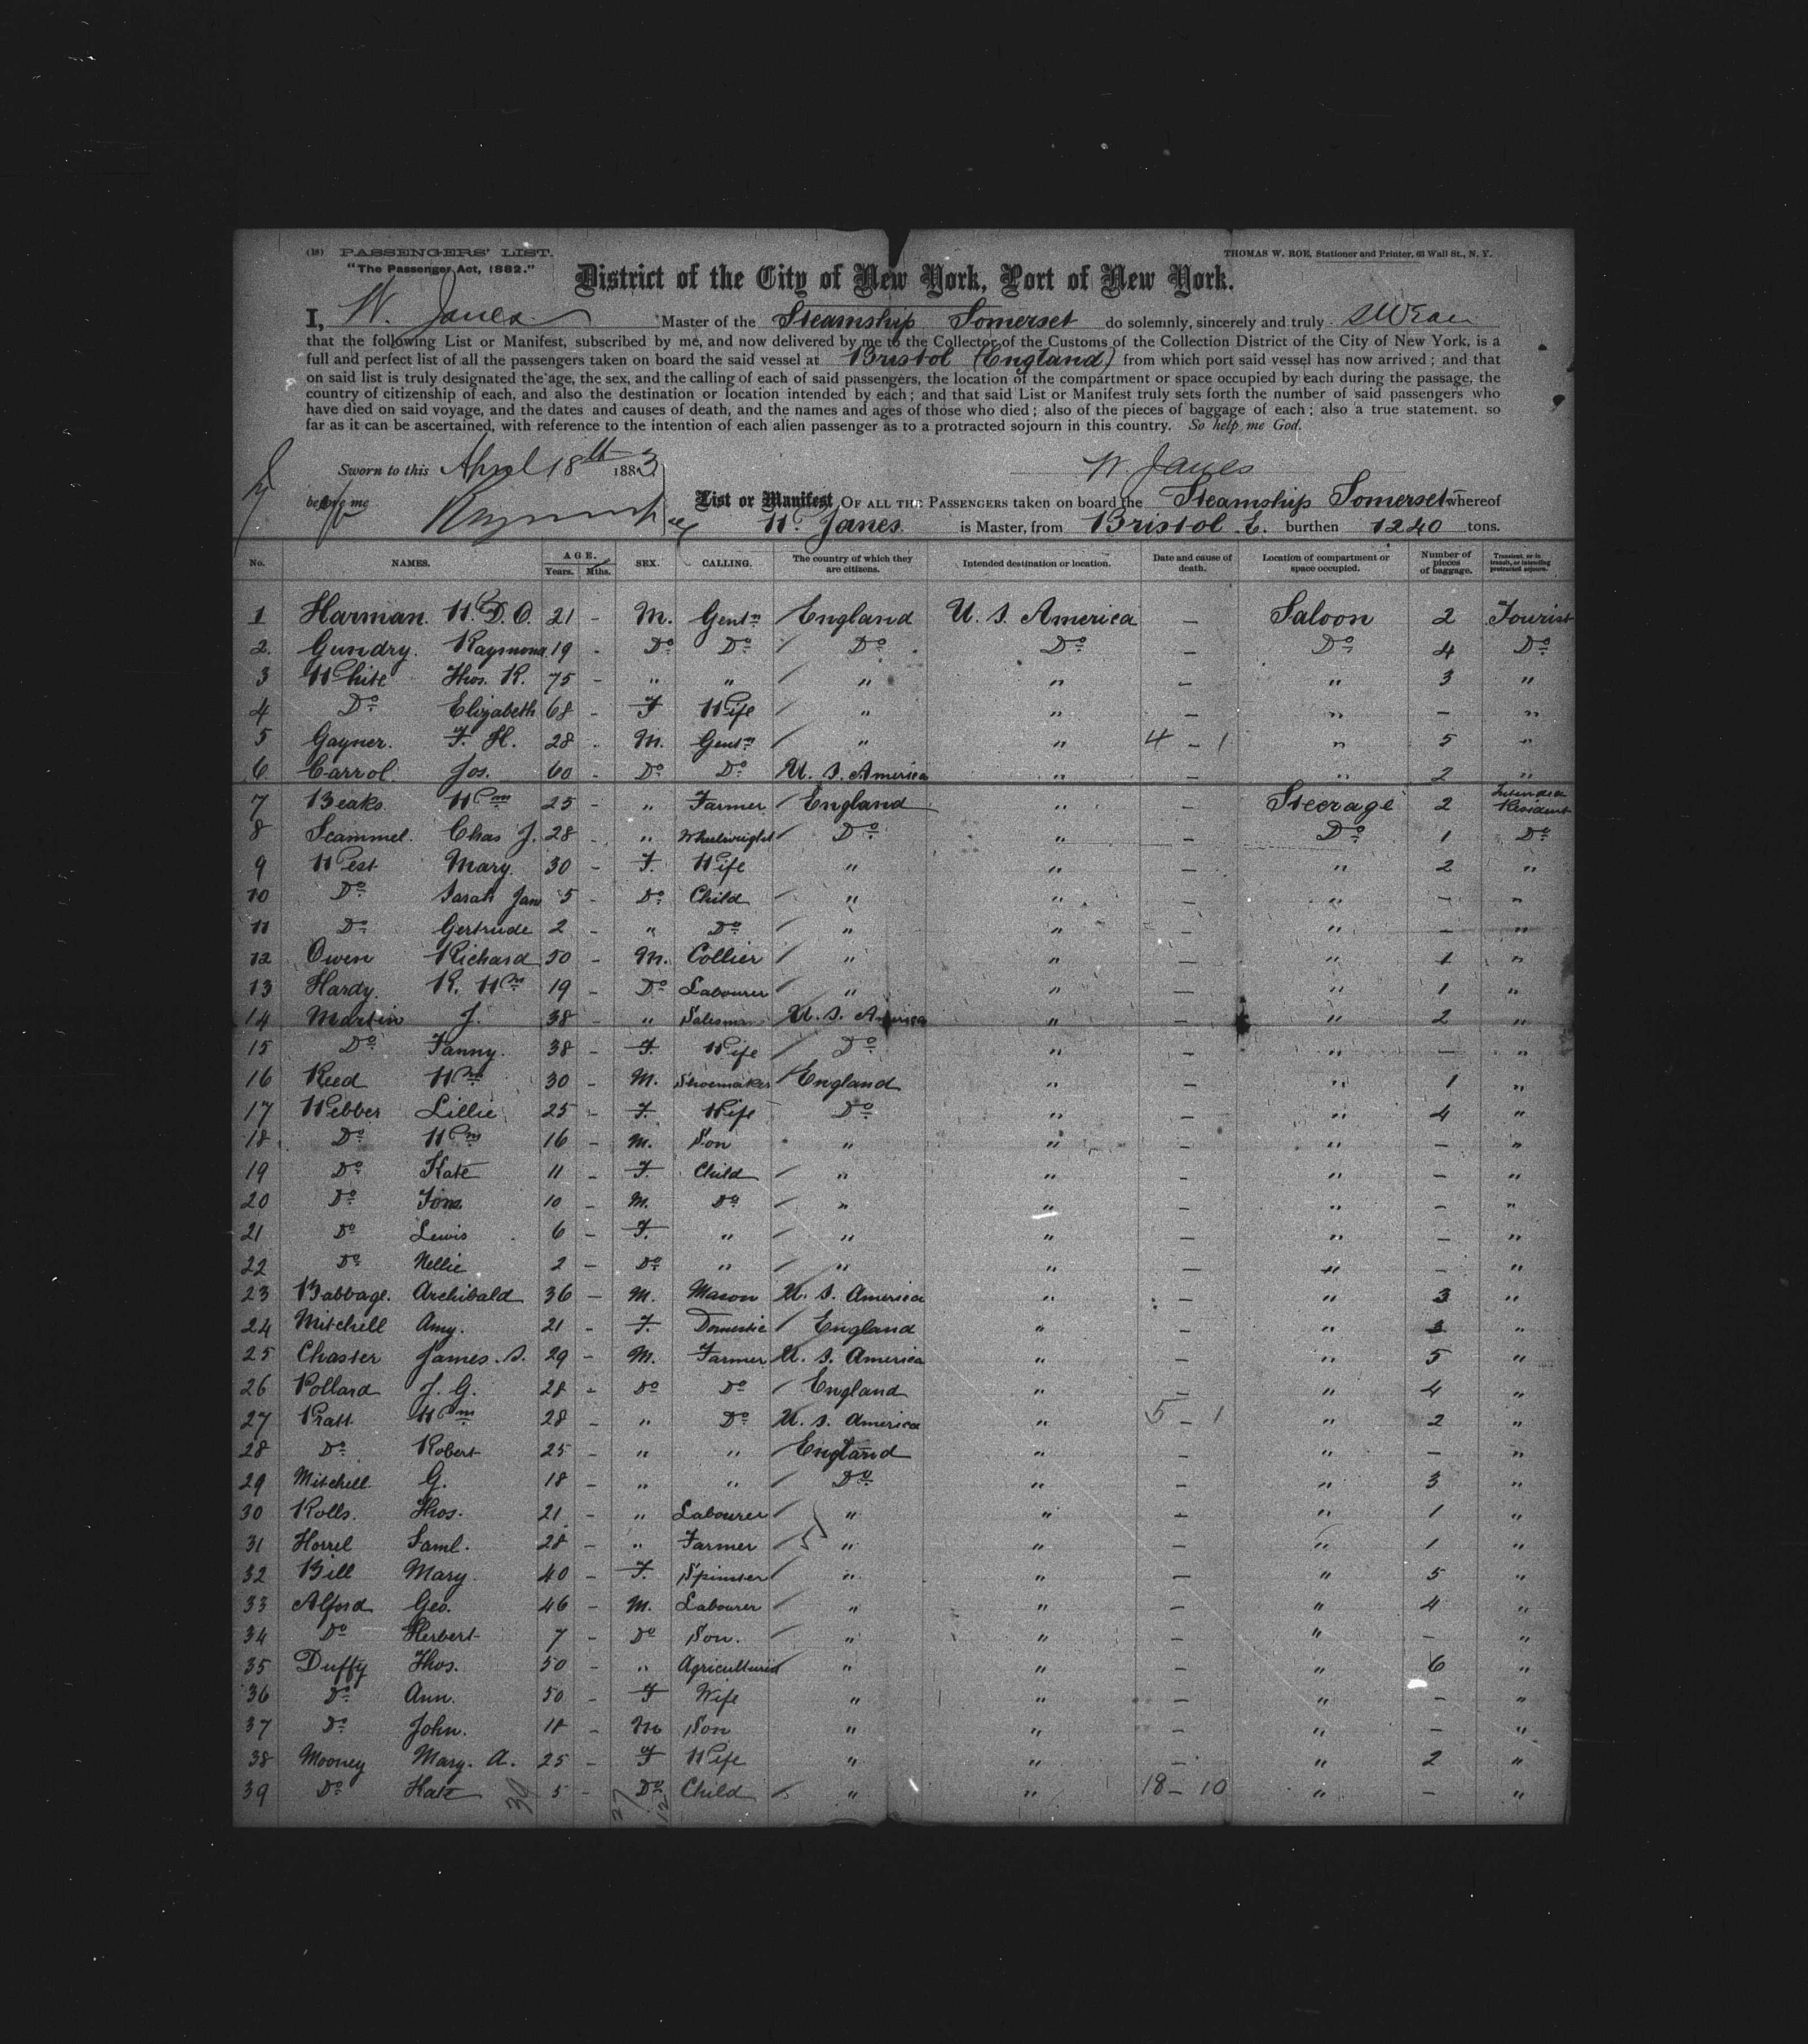 (18) PASSENGERS' LIST.
THOMAS W. ROE, Stationer and Printer, 63 Wall St., N. Y.
"The Passenger Act, 1882."
District of the City of New York, Port of New York.
I, W. Janes Master of the Steamship Somerset do solemnly, sincerely and truly swear
that the following List or Manifest, subscribed by me, and now delivered by me to the Collector of the Customs of the Collection District of the City of New York, is a
full and perfect list of all the passengers taken on board the said vessel at Bristol (England) from which port said vessel has now arrived ; and that
on said list is truly designated the age, the sex, and the calling of each of said passengers, the location of the compartment or space occupied by each during the passage, the
country of citizenship of each, and also the destination or location intended by each ; and that said List or Manifest truly sets forth the number of said passengers who
have died on said voyage, and the dates and causes of death, and the names and ages of those who died ; also of the pieces of baggage of each ; also a true statement. so
far as it can be ascertained, with reference to the intention of each alien passenger as to a protracted sojourn in this country. So help me God.
Sworn to this April 18th 1883 W. Janes
before me
List or Manifest OF ALL THE PASSENGERS taken on board the Steamship Somerset whereof
W. Janes is Master, from Bristol E. burthen 1240 tons.
No. NAMES. AGE. Years. Mths. SEX. CALLING. The country of which they are citizens. Intended destination or location. Date and cause of death. Location of compartment or space occupied. Number of pieces of baggage. Transient, or in transit, or intending protracted sojourn.
1 Harman. W. D. O. 21 - M. Gentn England U. S. America - Saloon 2 Tourist
2. Gundry. Raymond 19 - Do Do Do Do - Do 4 Do
3 White Thos. R. 75 - " " " " - " 3 "
4 Do Elizabeth 68 - F Wife " " - " - "
5 Gayner. F. H. 28 - M. Gentn " " 4 - 1 " 5 "
6. Carrol. Jos. 60 - Do Do U. S. America " - " 2 "
7 Beaks. Wm 25 - " Farmer England " - Steerage 2 Intendin Resident
8 Scammel. Chas J. 28 - " Wheelwright Do " - Do 1 Do
9 West Mary. 30 - F. Wife " " - " 2 "
10 Do Sarah Jane 5 - Do Child " " - " - "
11 Do Gertrude 2 - " Do " " - " - "
12 Owen Richard 50 - M. Collier " " - " 1 "
13 Hardy. R. Wm 19 - Do Labourer " " - " 1 "
14 Martin J. 38 - " Salesman U. S. America " - " 2 "
15 Do Fanny. 38 - F. Wife Do " - " - "
16 Reed Wm 30 - M. Shoemaker England " - " 1 "
17 Webber Lillie 25 - F. Wife Do " - " 4 "
18. Do Wm 16 - M. Son " " - " - "
19 Do Kate 11 - F. Child " " - " - "
20 Do Tom 10 - M. Do " " - " - "
21 Do Lewis 6 - F. " " " - " - "
22 Do Nellie 2 - Do " " " - " - "
23 Babbage. Archibald 36 - M. Mason U. S. America " - " 3 "
24 Mitchell Amy. 21 - F. Domestic England " - " 3 "
25 Chaster James. S. 29 - M. Farmer U. S. America " - " 5 "
26 Pollard J. G. 28 - Do Do England " - " 4 "
27 Pratt Wm 28 - " Do U. S. America " 5 - 1 " 2 "
28 Do Robert 25 - " " England " - " - "
29 Mitchell. G. 18 - " " Do " - " 3 "
30 Rolls. Thos. 21 - " Labourer " " - " 1 "
31 Horrel Saml. 28 - " Farmer " " - " 1 "
32 Bill Mary. 40 - F. Spinster " " - " 5 "
33 Alford Geo. 46 - M. Labourer " " - " 4 "
34 Do Herbert 7 - Do Son. " " - " - "
35 Duffy Thos. 50 - " Agriculturist " " - " 6 "
36 Do Ann. 50 - F Wife " " - " - "
37 Do John. 18 - M Son " " - " - "
38 Mooney Mary. A. 25 - F Wife " " - " 2 "
39 Do Kate 5 - Do Child " " 18 - 10 " - "
39 27 12